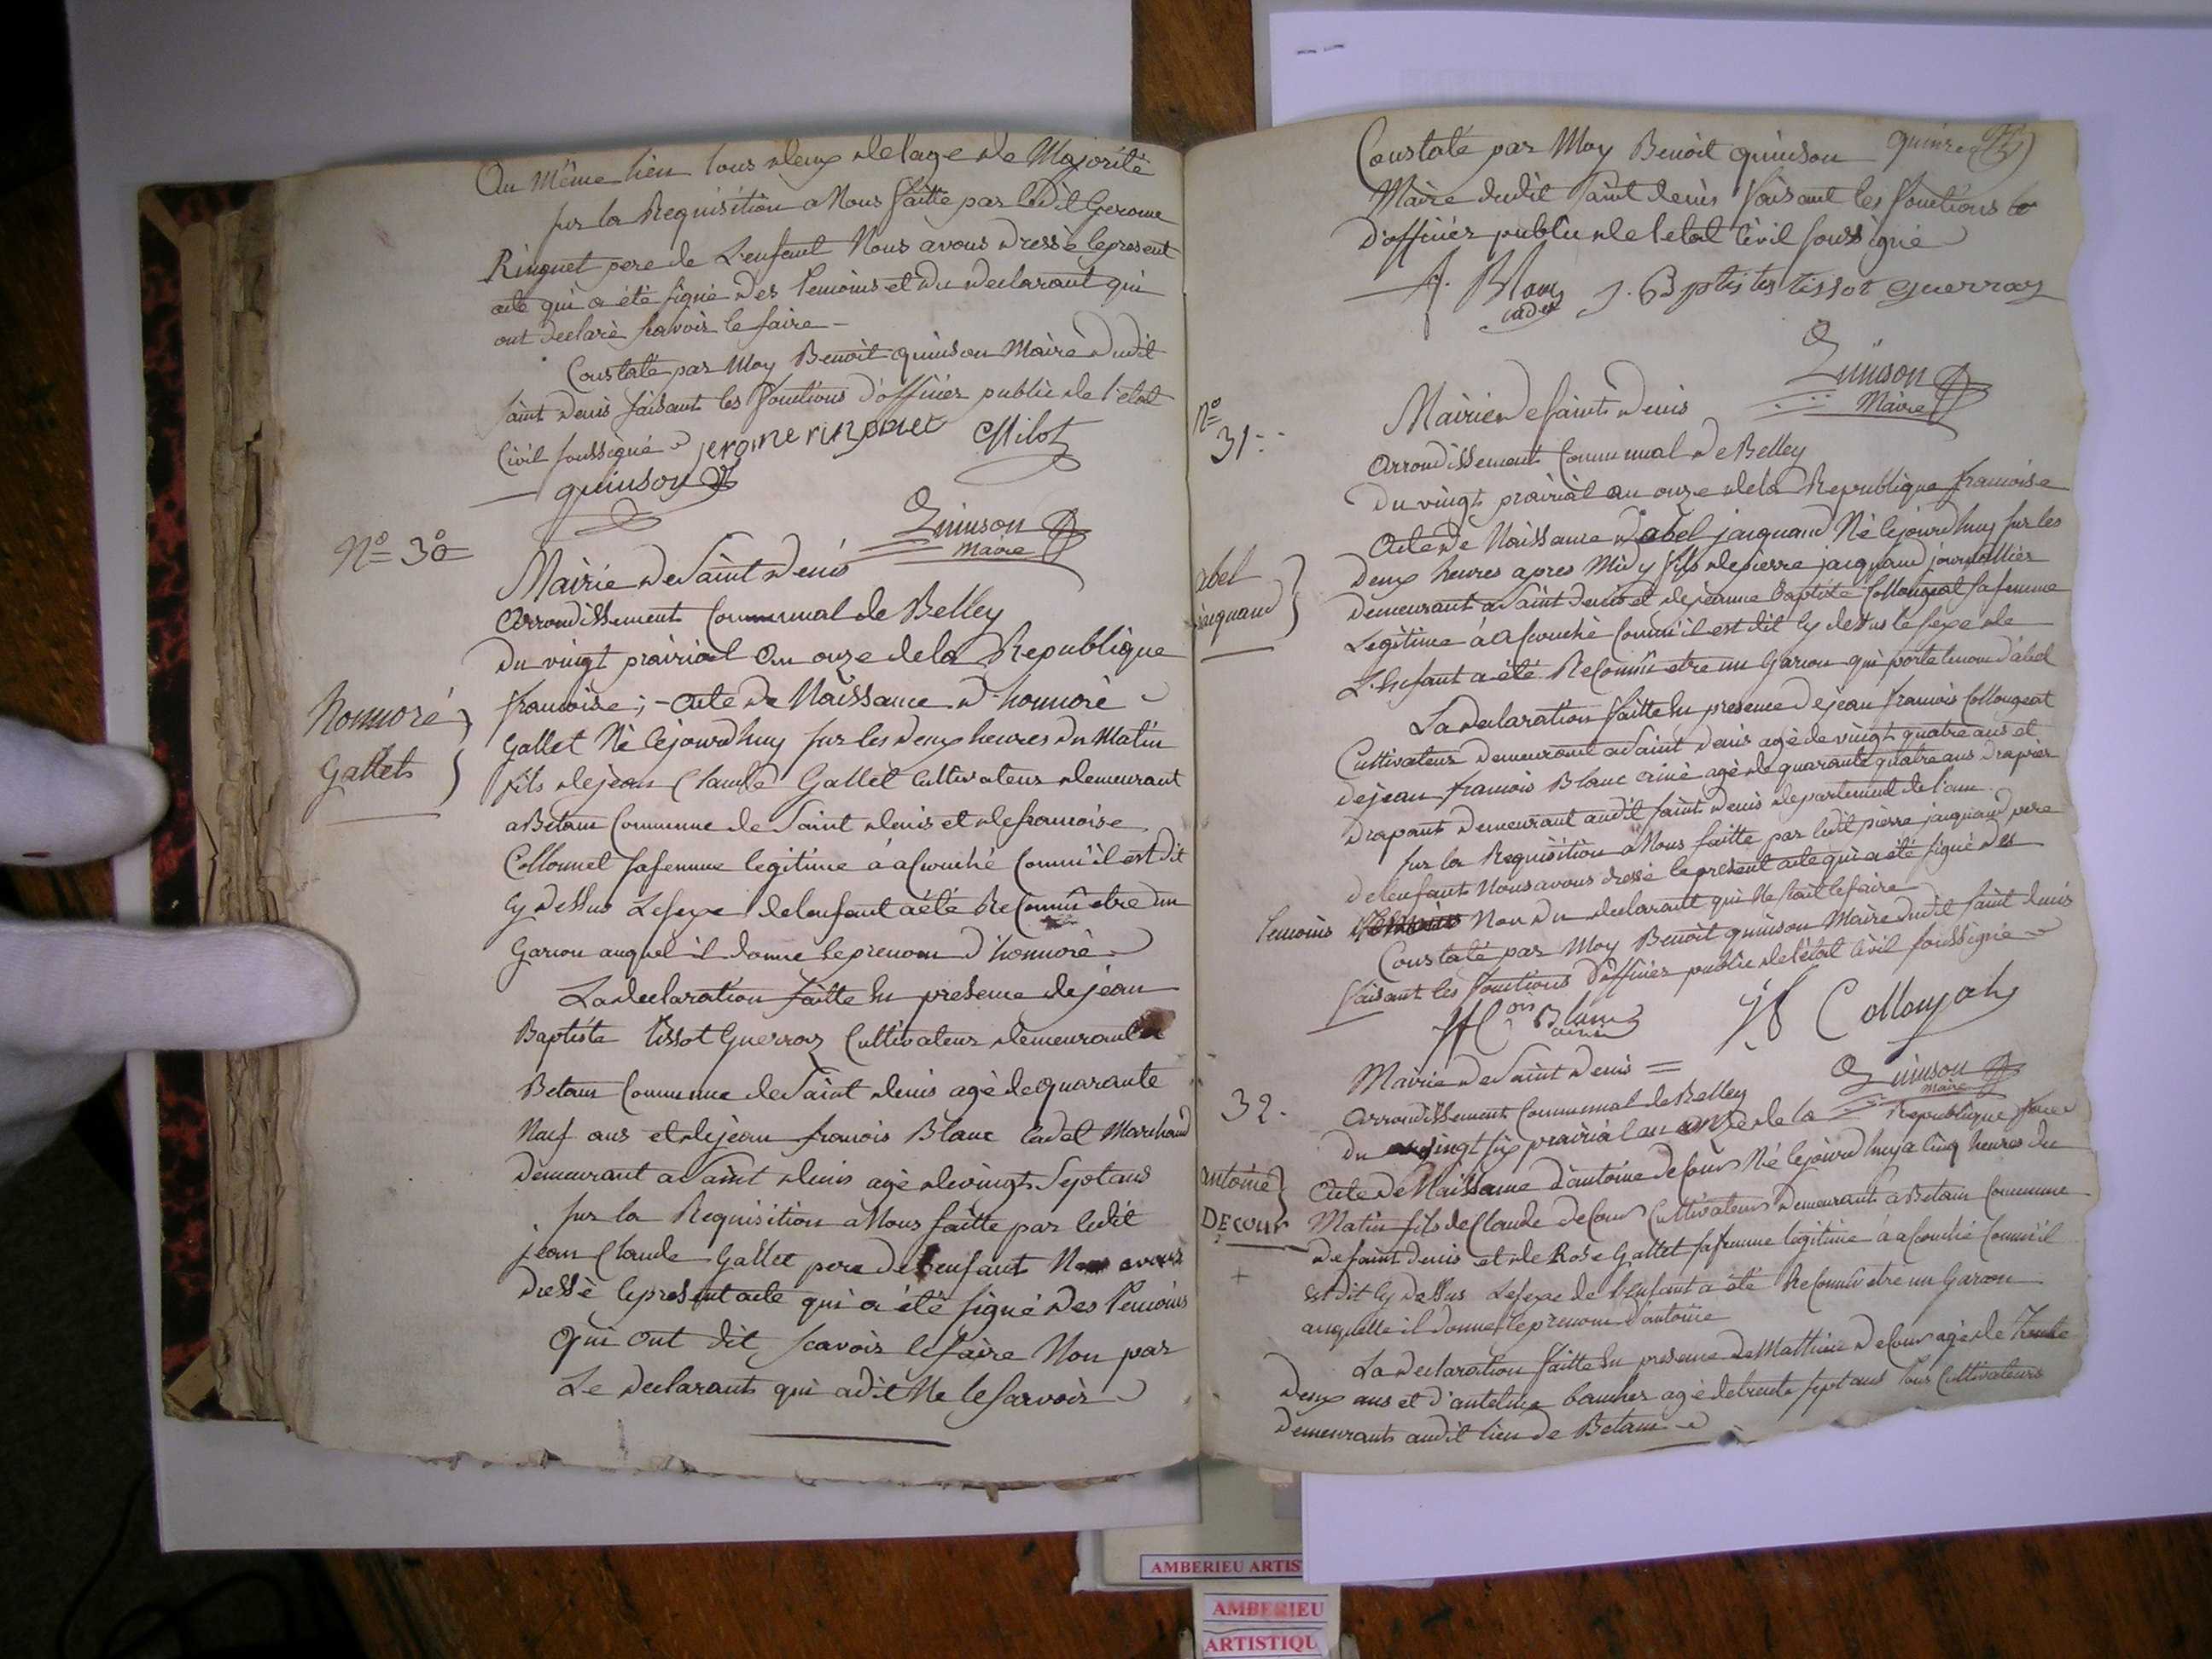 Au Même lieu tous deux de lage de Majorité
sur la Requisition a Nous faitte par ledit Gerome
Ringuet pere de L'enfant Nous avons dressé le present
acte qui a été signé des temoins et du declarant qui
ont declaré scavoir le faire
Constaté par Moy Benoit quinson Maire dudit
saint denis faisant les fonctions d'officier public de l'etat
Civil soussigné jerome ringuet Milot
quinson
Quinson
Maire
N° 30
Mairie de Saint denis
Arrondissement Communal de Belley
du vingt prairial An onze dela Republique
francoise; - Acte de Naissance d'honnoré
honnoré
Gallet
Gallet Né cejourdhuy sur les deux heures du Matin
fils de jean Claude Gallet Cultivateur demeurant
a Betam Commune de Saint denis et de francoise
Collomet sa femme legitime á acouché Comm'il est dit
Cy dessus Le sexe de lenfant a été Reconnu etre un
Garcon auquel il donne le prenom d'honnoré
La declaration faitte En presence de jean
Baptiste tissot Guerraz Cultivateur demeurant a
Betam Commune de Saint denis agé de quarante
Neuf ans et de jean francois Blanc Cadet Marchand
demeurant a Saint denis agé de vingt Sept ans
sur la Requisition a Nous faitte par ledit
jean Claude Gallet pere de l'enfant Nous avons
dressé le present acte qui a été signé des temoins
qui ont dit scavoir le faire Non par
Le declarant qui a dit Ne le scavoir
Constaté par Moy Benoit quinson quinze
Maire dudit Saint denis faisant les fonctions
d'officier public de l'etat Civil soussigné
f. Blanc cadet j. Bptiste tissot guerraz
Quinson
Maire
N°
31
Mairie de Saint denis
Arrondissement Communal de Belley
du vingt prairial an onze dela Republique francoise
Acte de Naissance d'abel jacquand Né cejourdhuy sur les
abel
jacquand
deux heures apres Midy fils de pierre jacquand journallier
demeurant a Saint denis et de jeanne Baptiste Collongeat sa femme
Legitime á acouché Comm'il est dit Cy dessus le sexe de
L'enfant a été Reconnu etre un Garcon qui porte le nom d'abel
La declaration faitte En presence de jean francois Collongeat
Cultivateur demeurant a Saint denis agé de vingt quatre ans et
de jean francois Blanc ainé agé de quarante quatre ans drapier
drapant demeurant audit saint denis departement de l'ain
sur la Requisition a Nous faitte par ledit pierre jacquand pere
de lenfant Nous avons dressé le present acte qui a été signé des
temoins Non du declarant qui Ne scait le faire
Constaté par Moy Benoit quinson Maire dudit Saint denis
faisant les fonctions d'officier public de l'état Civil soussigné
Blanc ainé Collonjat
Quinson
Maire
32
Mairie de Saint denis
Arrondissement Communal de Belley
du vingt six prairial an onze de la Republique
antoine
DECOUR
Acte de Naissance d'antoine decour Né cejourdhuy a Cinq heures du
Matin fils de Claude decour Cultivateur demeurant a Betam Commune
de saint denis et de Rose Gallet sa femme legitime á acouché Comm'il
est dit Cy dessus Le sexe de l'enfant a été Reconnu etre un Garcon
auquelle il donne le prenom d'antoine
La declaration faitte En presence de Mathieu decour agé de trente
deux ans et d'antelme agé de trente sept ans tous Cultivateurs
demeurants audit lieu de Betam
AMBERIEU ARTIS
AMBERIEU
ARTISTIQU